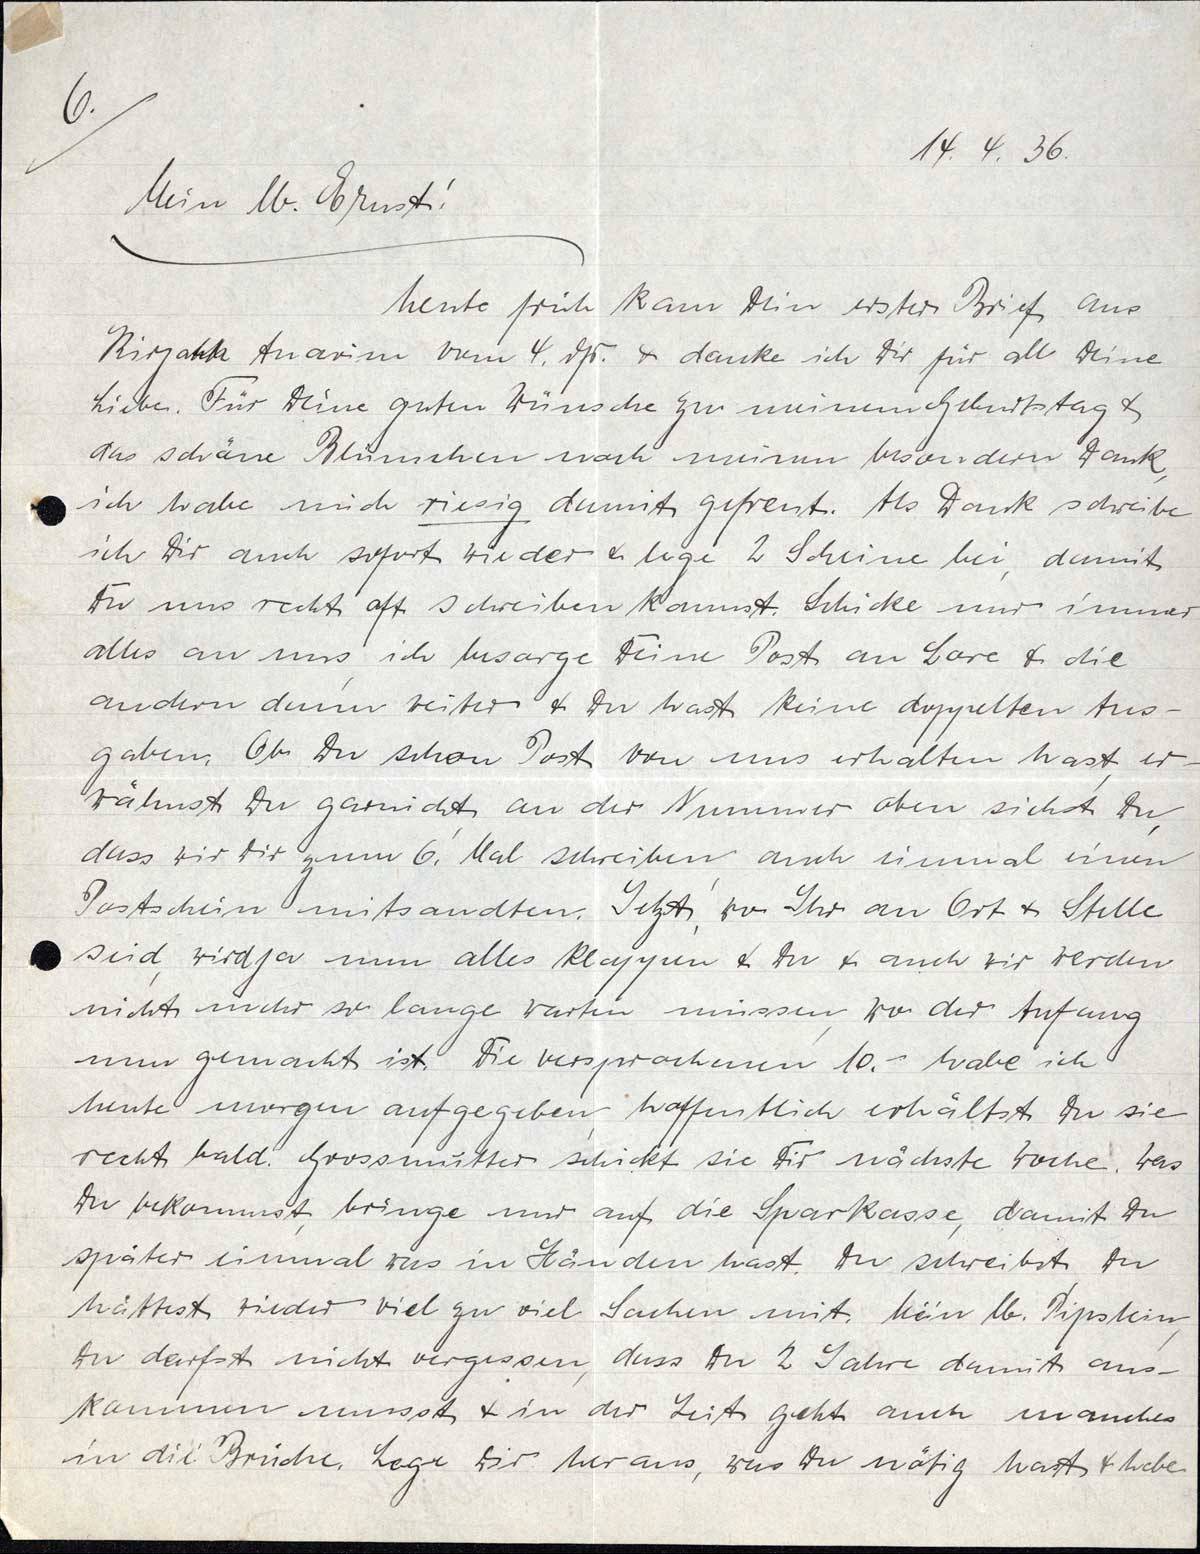 6.
14. 4. 36.
Mein lb. Ernst!
heute früh kam Dein erster Brief aus
Kirjath Anavim vom 4. ds. & danke ich Dir für all Deine
Liebe. Für Deine guten Wünsche zu meinem Geburtstag &
das schöne Blümchen noch meinen besondern Dank,
ich habe mich riesig damit gefreut. Als Dank schreibe
ich Dir auch sofort wieder & lege 2 Scheine bei, damit
Du uns recht oft schreiben kannst. Schicke nur immer
alles an uns, ich besorge Deine Post an Lore & die
andern dann weiter & Du hast keine doppelten Aus-
gaben. Ob Du schon Post von uns erhalten hast, er-
wähnst Du garnicht, an der Nummer oben siehst Du,
dass wir Dir zum 6. Mal schreiben, auch einmal einen
Postschein mitsandten. Jetzt, wo Ihr an Ort & Stelle
seid, wird ja nun alles klappen & Du & auch wir werden
nicht mehr so lange warten müssen, wo der Anfang
nun gemacht ist. Die versprochenen 10.- habe ich
heute morgen aufgegeben, hoffentlich erhältst Du sie
recht bald. Grossmutter schickt sie Dir nächste Woche. Was
Du bekommst, bringe nur auf die Sparkasse, damit Du
später einmal was in Händen hast. Du schreibst, Du
hättest wieder viel zu viel Sachen mit. Mein lb. Pipslein,
Du darfst nicht vergessen, dass Du 2 Jahre damit aus-
kommen musst & in der Zeit geht auch manches
in die Brüche. Lege Dir heraus, was Du nötig hast & hebe